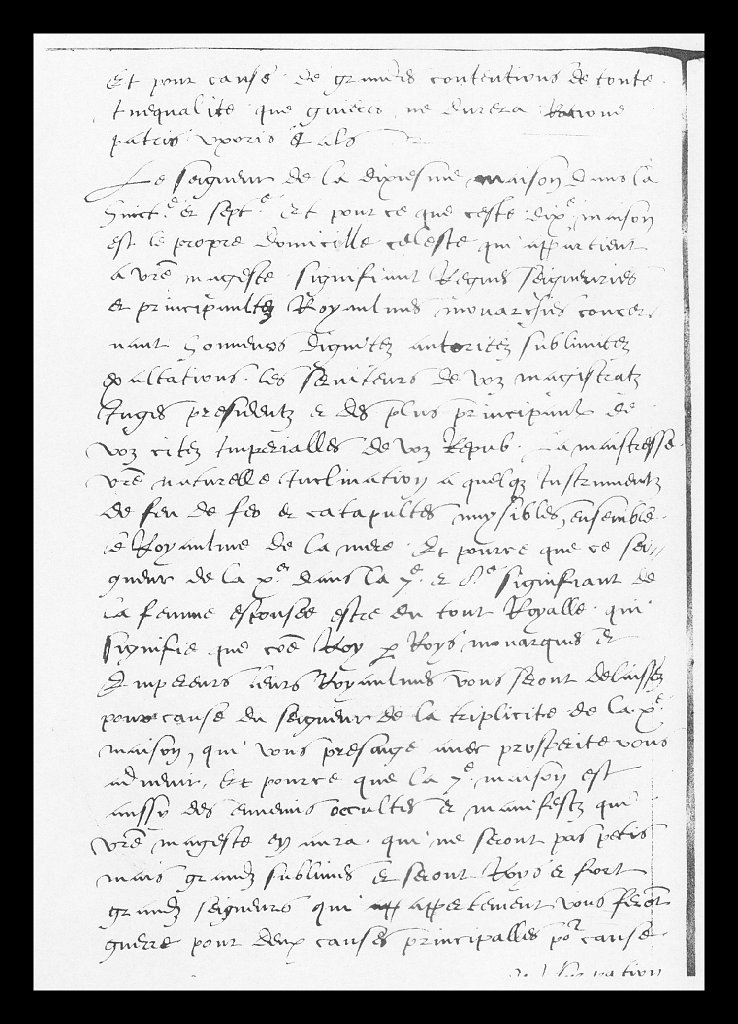 Et pour cause de grandes contentions de toute
Inequalite que guieres ne durera Ratione
patris uxoris et als
Le seigneur de la dixiesme maison dans la
huict.e et sept.e Et pour ce que ceste dix.e maison
est le propre domicille celeste qui appartient
a vre mageste signifiant Regnes seigneuries
et principaultez Royaulmes monarchies concer
nant honneurs dignitez autoritez sublimitez
exaltations les serviteurs de voz magistratz
Juges presidentz et des plus principaulx de
voz citez Imperialles de voz Repub. La maistresse
vre naturelle Inclination a quelqz Instrumentz
de feu de fes et catapultes nuysibles ensemble
le Royaulme de la mere Et pource que ce sei-
gneur de la x.e dans la 7.e et 8.e signifiant de
la femme espousee estre du tout Royalle qui
signifie que coe Roy p Roys monarques et
Empereurs leurs Royaulmes vous seront delaissez
pour cause du seigneur de la triplicite de la x.e
maison, qui vous presaige avec prosperite vous
advenir, Et pource que la 7.e maison est
aussy des ennemis occultes et manifestz qui
vre mageste en aura qui ne seront pas petis
mais grandz sublimes et seront Roys et fort
grandz seigneurs qui app appertement vous feront
guerre pour deux causes principalles por cause